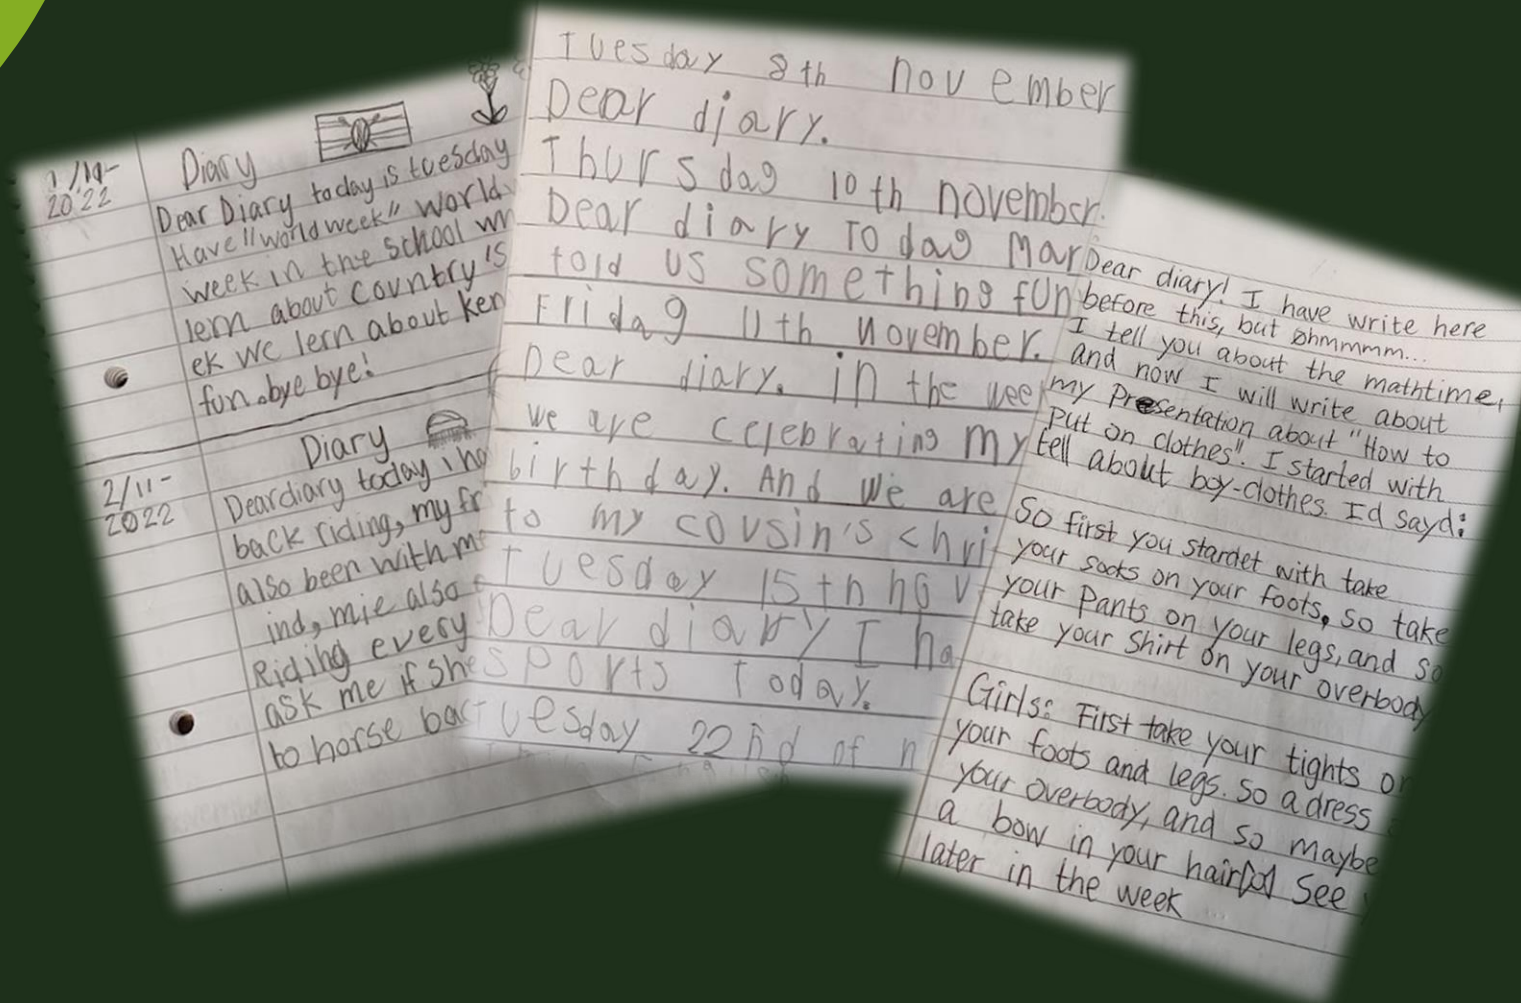 1/10-
2022
Diary
Dear Diary today is tuesday
Have "world week" world
week in the school
lern about country's
ek we lern about ken
fun. bye bye!
2/11-
2022
Diary
Dear diary today i
back riding, my fr
also been with m
ind, mie also
Riding every
ask me if she
to horse bac
Tuesday 8th november
Dear diary.
Thursdag 10th november.
Dear diary Todag Mar
told us something fun
Fridag 11th november.
Dear diary. in the wee
we are celebrating my
birthday. And we are
to my cousin's chri
Tuesday 15th nov
Dear diary I ha
sports Today.
Tuesday 22nd of n
Dear diary! I have write here
before this, but Øhmmmm...
I tell you about the mathtime,
and now I will write about
my Presentation about "How to
put on clothes". I started with
tell about boy-clothes. Id sayd:
So first you stardet with take
your socks on your foots, so take
your pants on your legs, and so
take your shirt on your overbody
Girls: First take your tights on
your foots and legs. so a dress
your overbody, and so maybe
a bow in your hair See
later in the week